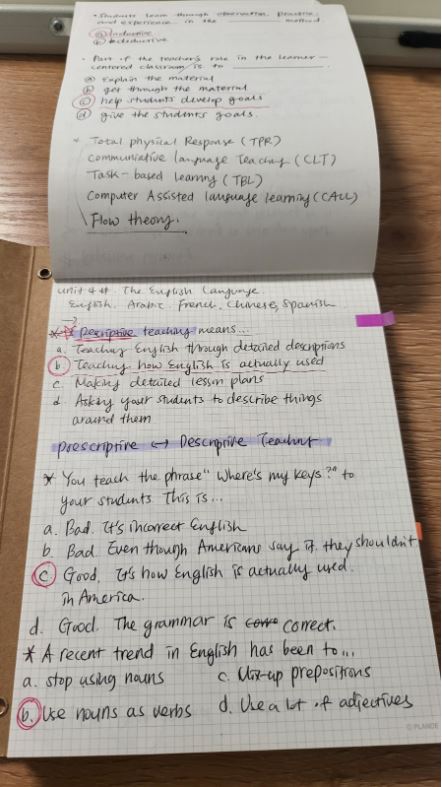 • Students learn through observation, practice,
and experience in the ______ method.
ⓐ inductive
ⓑ deductive
• Part of the teacher's role in the learner-
centered classroom is to ______.
ⓐ Explain the material
ⓑ get through the material
ⓒ help students develop goals
ⓓ give the students goals.
Total physical Response (TPR)
Communicative language Teaching (CLT)
Task-based learning (TBL)
Computer Assisted language learning (CALL)
Flow theory.
Unit 4 #. The English Language.
English. Arabic. French. Chinese, Spanish
* Descriptive teaching means...
a. Teaching English through detailed descriptions
b. Teaching how English is actually used
c. Making detailed lesson plans
d. Asking your students to describe things
around them
prescriptive ↔ Descriptive Teaching
* You teach the phrase "Where's my keys?" to
your students This is...
a. Bad. It's incorrect English
b. Bad Even though Americans say it. they shouldn't
c. Good. It's how English is actually used.
in America.
d. Good. The grammar is correct.
* A recent trend in English has been to...
a. stop using nouns c. Mix-up prepositions
b. Use nouns as verbs d. Use a lot of adjectives
© PLANDE